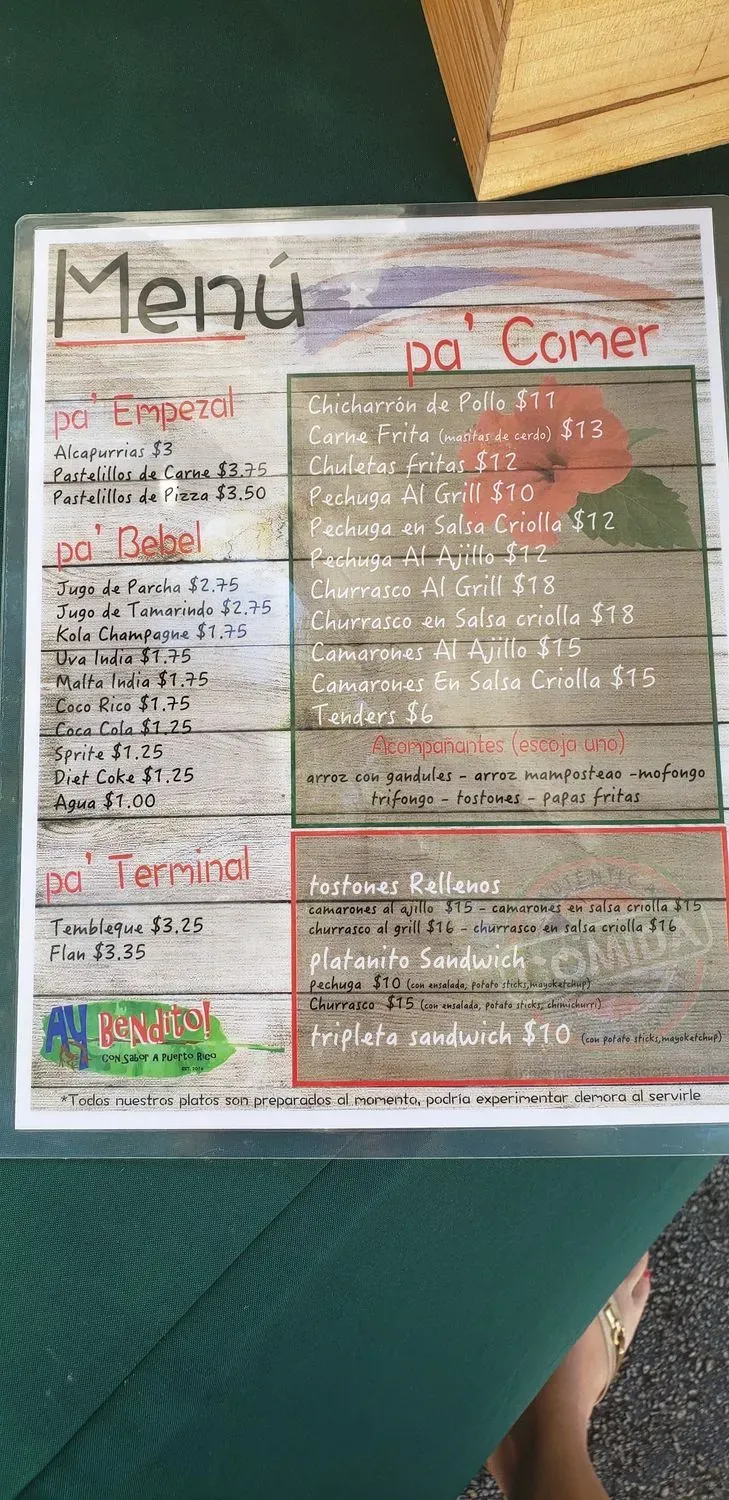 Menú
pa' Empezal
Alcapurrias $3
Pastelillos de Carne $3.75
Pastelillos de Pizza $3.50
pa' Bebel
Jugo de Parcha $2.75
Jugo de Tamarindo $2.75
Kola Champagne $1.75
Uva India $1.75
Malta India $1.75
Coco Rico $1.75
Coca Cola $1.25
Sprite $1.25
Diet Coke $1.25
Agua $1.00
pa' Terminal
Tembleque $3.25
Flan $3.35
Ay Bendito!
Con Sabor A Puerto Rico
pa' Comer
Chicharrón de Pollo $11
Carne Frita (masitas de cerdo) $13
Chuletas fritas $12
Pechuga Al Grill $10
Pechuga en Salsa Criolla $12
Pechuga Al Ajillo $12
Churrasco Al Grill $18
Churrasco en Salsa criolla $18
Camarones Al Ajillo $15
Camarones En Salsa Criolla $15
Tenders $6
Acompañantes (escoja uno)
arroz con gandules - arroz mamposteao -mofongo
trifongo - tostones - papas fritas
tostones Rellenos
camarones al ajillo $15 - camarones en salsa criolla $15
churrasco al grill $16 - churrasco en salsa criolla $16
platanito Sandwich
pechuga $10 (con ensalada, potato sticks,mayoketchup)
Churrasco $15 (con ensalada, potato sticks, chimichurri)
tripleta sandwich $10 (con potato sticks,mayoketchup)
COMIDA
*Todos nuestros platos son preparados al momento, podría experimentar demora al servirle